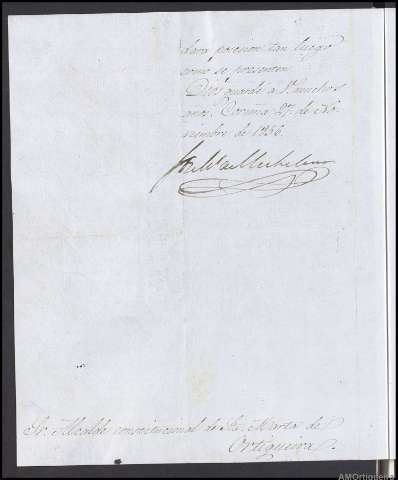 dara posesion tan luego
como se presenten
Dios guarde a V. muchos
años. Coruña 27 de No-
viembre de 1856.
Sr. Alcalde constitucional de Sta. Marta de
Ortigueira.
AMOrtigueira